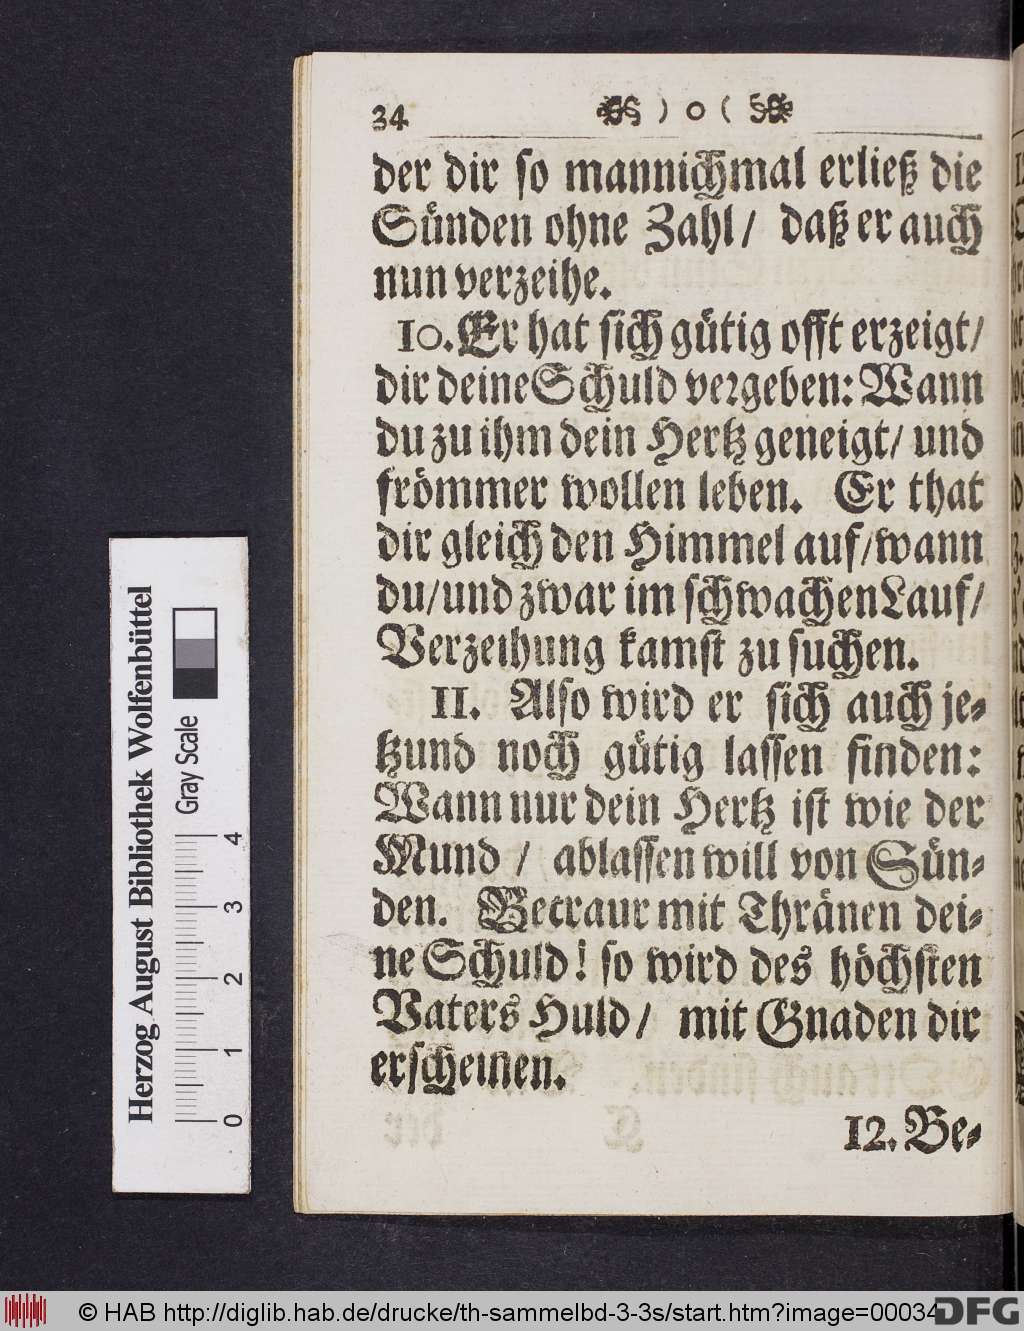 34 ) o (
der dir so mannichmal erließ die
Sünden ohne Zahl / daß er auch
nun verzeihe.
10. Er hat sich gütig offt erzeigt /
dir deine Schuld vergeben: Wann
du zu ihm dein Hertz geneigt / und
frömmer wollen leben. Er that
dir gleich den Himmel auf / wann
du / und zwar im schwachen Lauf /
Verzeihung kamst zu suchen.
11. Also wird er sich auch je-
tzund noch gütig lassen finden:
Wann nur dein Hertz ist wie der
Mund / ablassen will von Sün-
den. Betraur mit Thränen dei-
ne Schuld! so wird des höchsten
Vaters Huld / mit Gnaden dir
erscheinen.
12. Be-
Herzog August Bibliothek Wolfenbüttel
Gray Scale
0 1 2 3 4
© HAB http://diglib.hab.de/drucke/th-sammelbd-3-3s/start.htm?image=00034
DFG